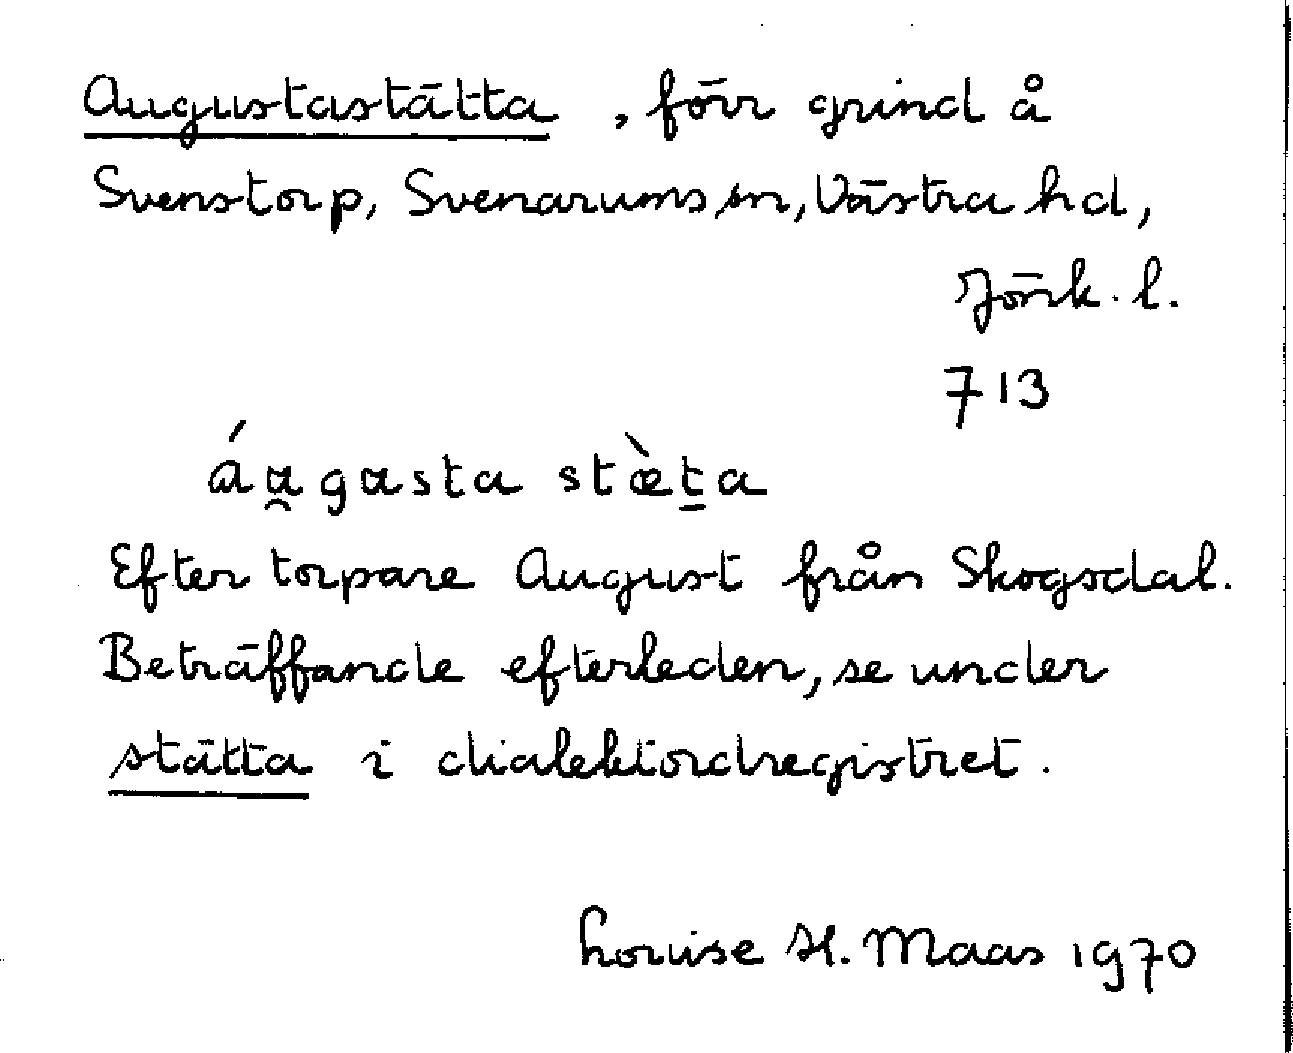 Augustastätta, förr grind å
Svenstorp, Svenarums sn, Västra hd,
Jönk. l.
713
áu̯gasta stæ̀t̠a
Efter torpare August från Skogsdal.
Beträffande efterleden, se under
stätta i dialektordregistret.
Louise H. Maas 1970